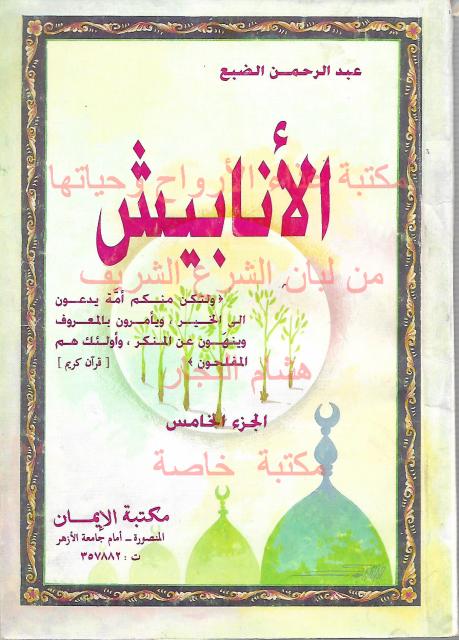 عبد الرحمن الضبع
مكتبة غذاء الأرواح وحياتها
الأنابيش
من لبان الشرع الشريف
﴿ ولتكن منكم أمَّة يدعون
الى الخير ، ويأمرون بالمعروف
وينهون عن المنكر ، وأولئك هم
المفلحون ﴾ [ قرآن كريم ]
هشام النجار
الجزء الخامس
مكتبة خاصة
مكتبة الإيمان
المنصورة - أمام جامعة الأزهر
ت : ٣٥٧٨٨٢